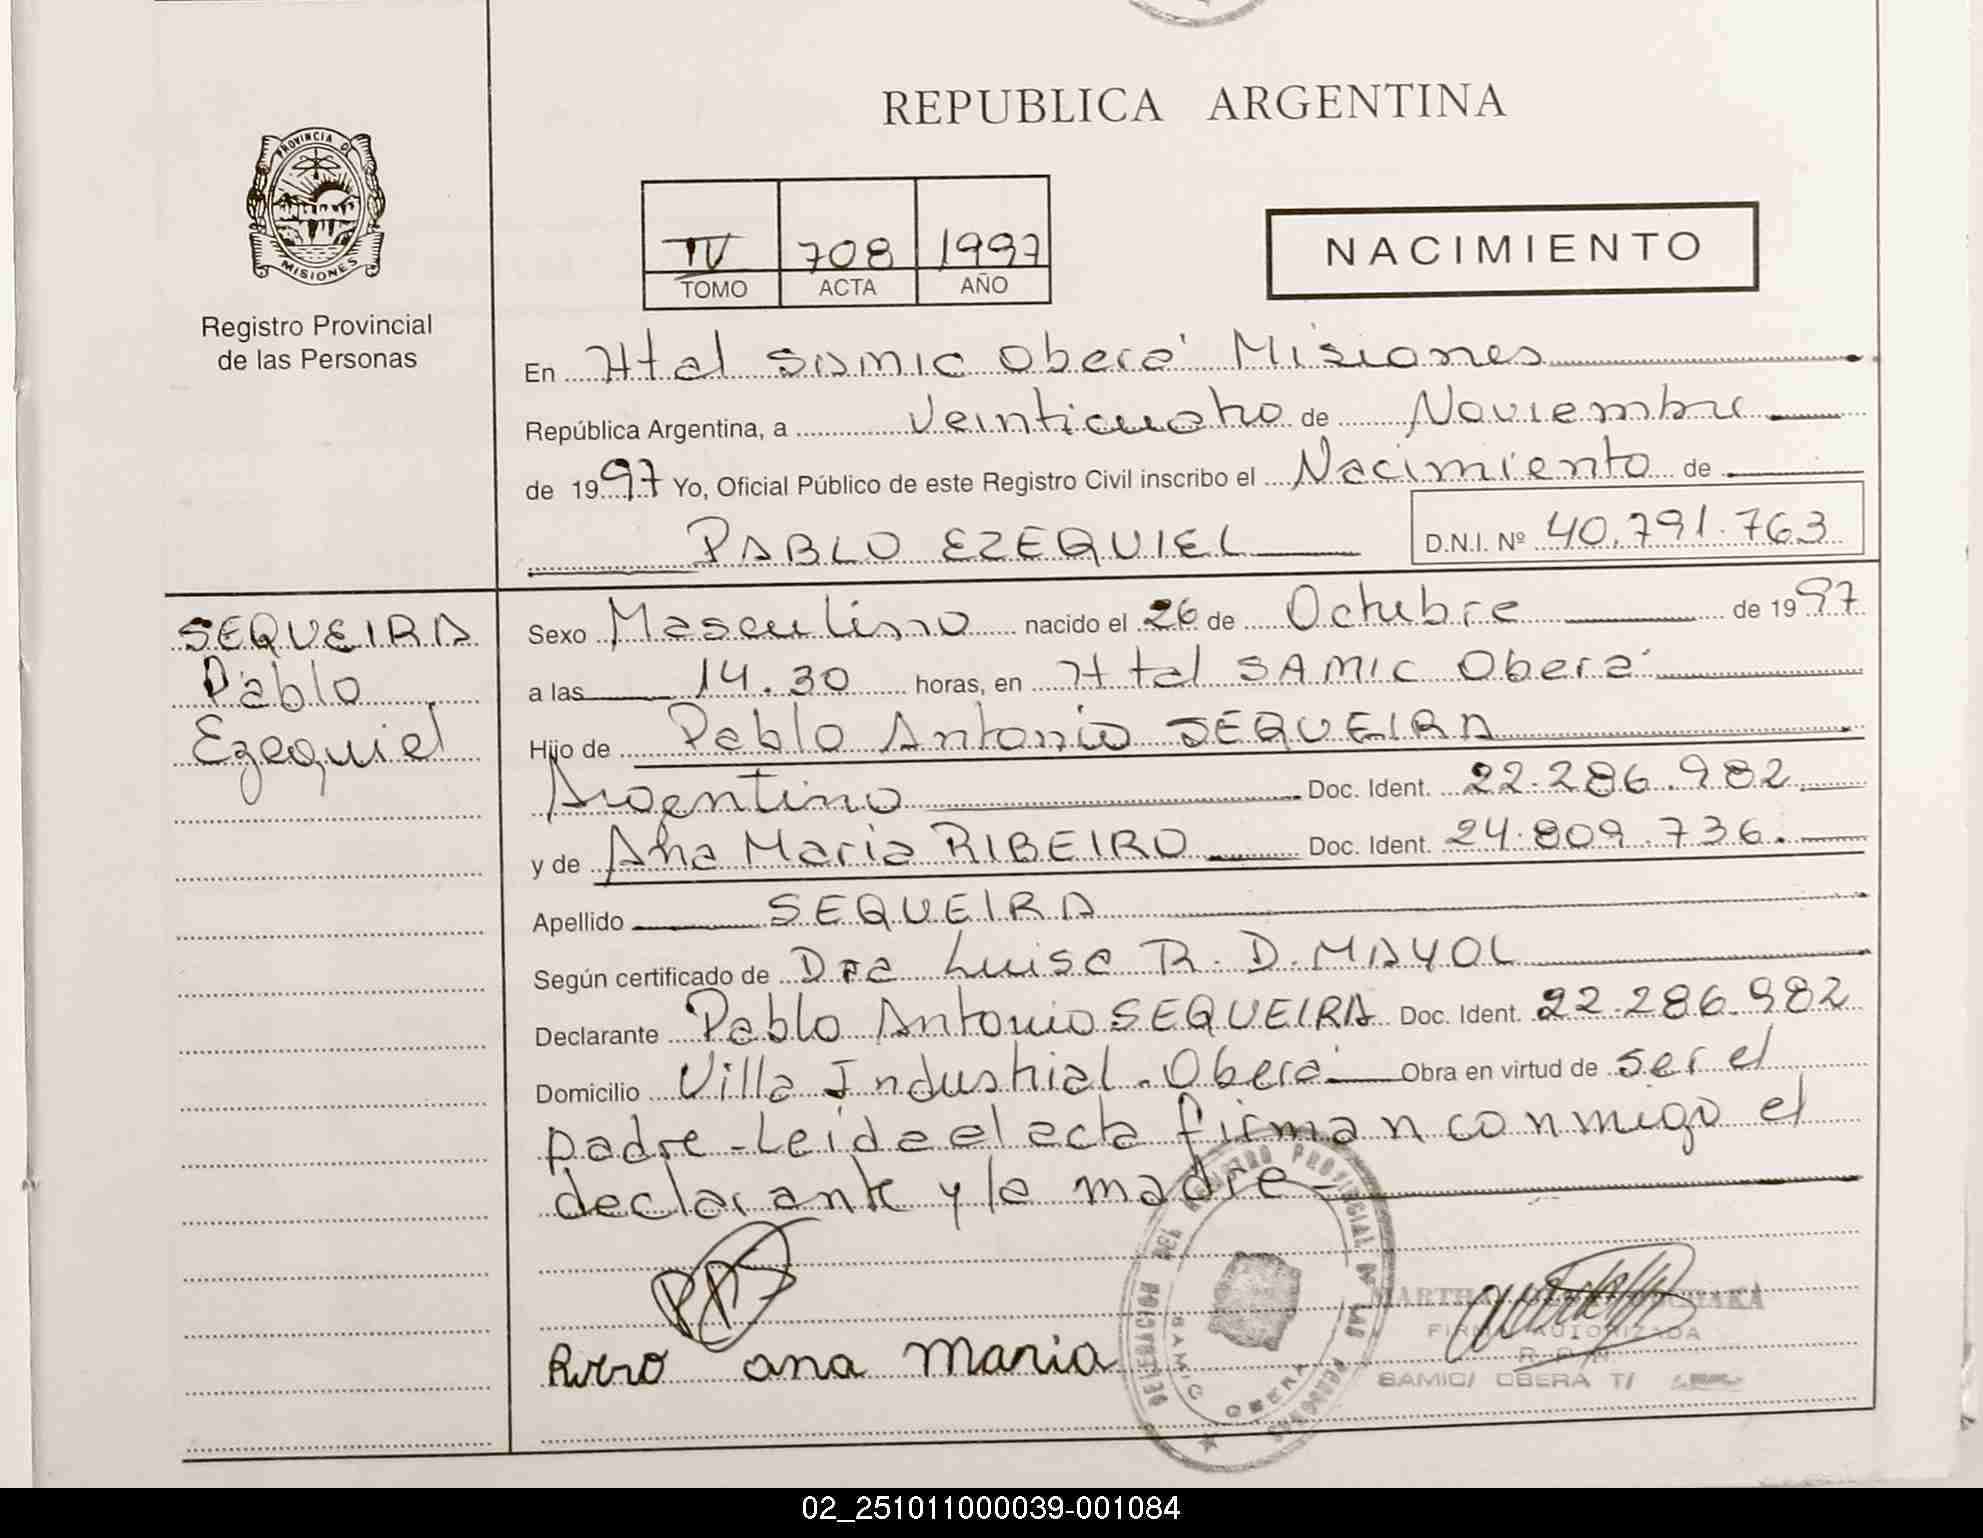 REPUBLICA ARGENTINA
PROVINCIA D
MISIONES
Registro Provincial
de las Personas
IV 708 1997
TOMO ACTA AÑO
NACIMIENTO
En Htal SAMIC Oberá Misiones
República Argentina, a Veinticuatro de Noviembre
de 1997 Yo, Oficial Público de este Registro Civil inscribo el Nacimiento de
PABLO EZEQUIEL D.N.I. Nº 40.791.763
SEQUEIRA
Pablo
Ezequiel
Sexo Masculino nacido el 26 de Octubre de 1997
a las 14.30 horas, en Htal SAMIC Oberá
Hijo de Pablo Antonio SEQUEIRA
Argentino Doc. Ident. 22.286.982
y de Ana Maria RIBEIRO Doc. Ident. 24.809.736.
Apellido SEQUEIRA
Según certificado de Dra Luisa R. D. MAYOL
Declarante Pablo Antonio SEQUEIRA Doc. Ident. 22.286.982
Domicilio Villa Industrial - Oberá Obra en virtud de ser el
padre - Leida el acta firman conmigo el
declarante y la madre -
DEL REGISTRO PROVINCIAL DE LAS PERSONAS
SAMIC OBERA
MARTHA
FIRMA AUTORIZADA
R.P.
SAMIC/ OBERA T/
ana Maria
02_251011000039-001084